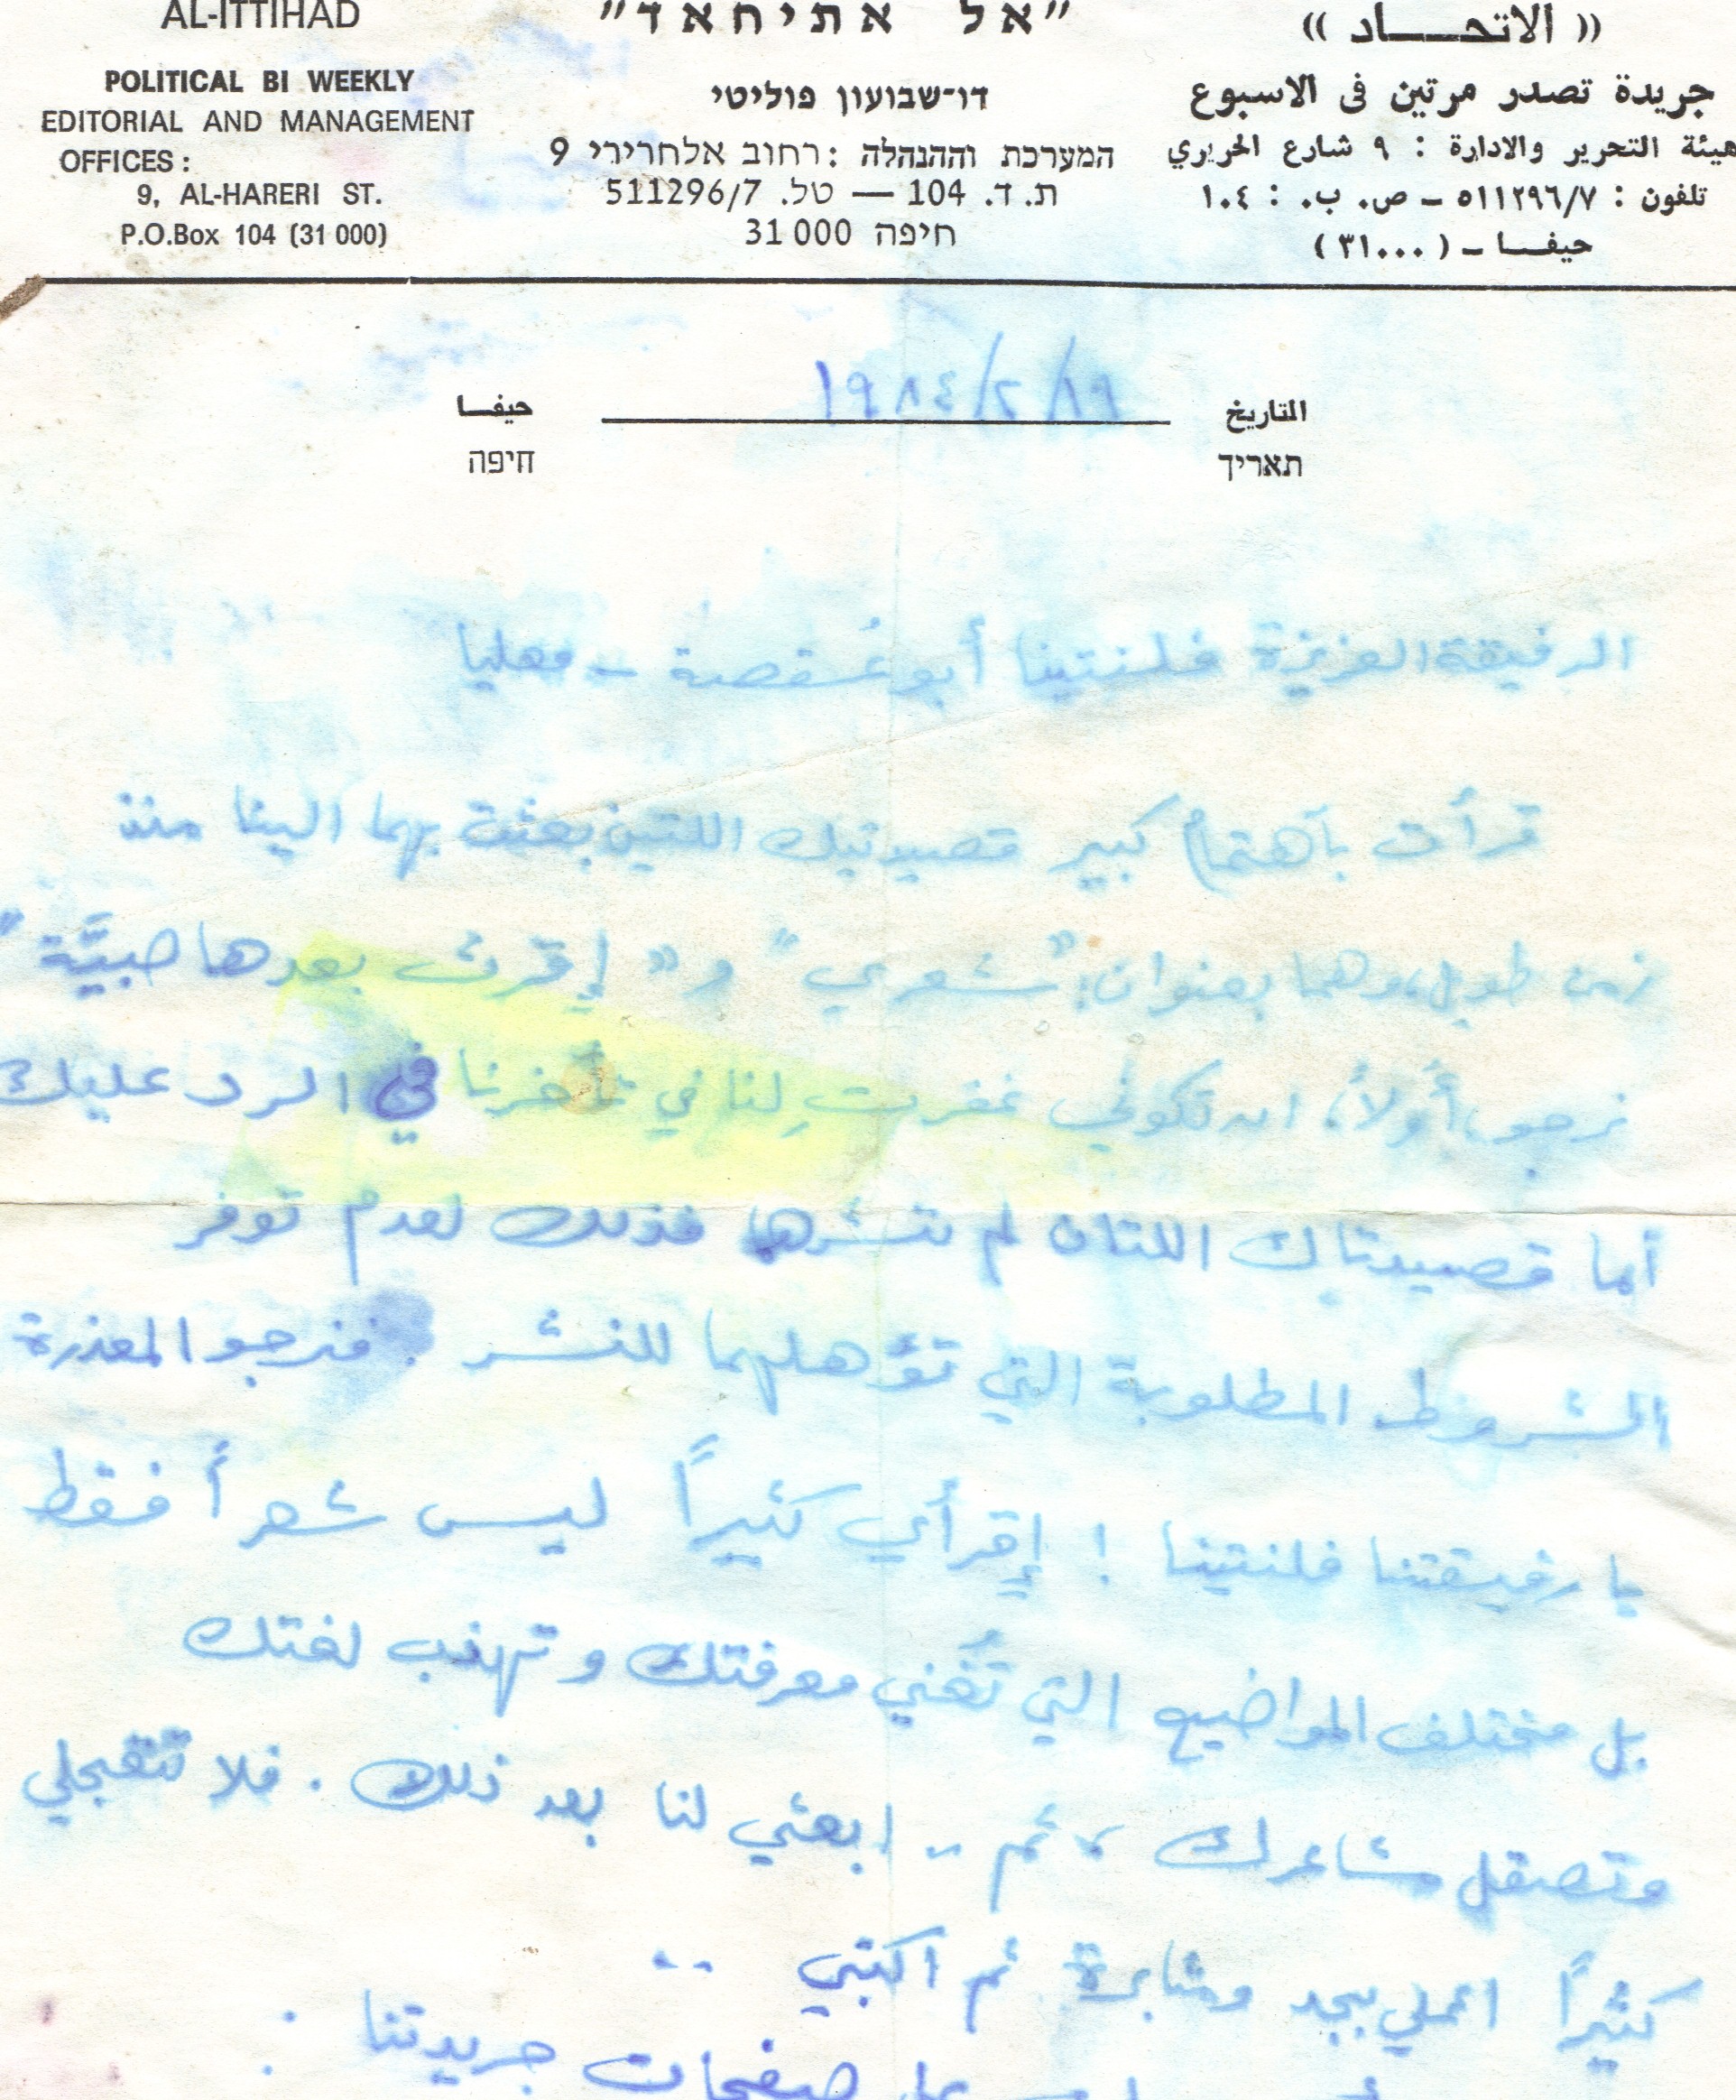 AL-ITTIHAD
POLITICAL BI WEEKLY
EDITORIAL AND MANAGEMENT
OFFICES :
9, AL-HARERI ST.
P.O.Box 104 (31 000)
"אל אתיחאד"
דו-שבועון פוליטי
המערכת וההנהלה : רחוב אלחרירי 9
ת. ד. 104 — טל. 511296/7
חיפה 31 000
(( الاتحـــاد ))
جريدة تصدر مرتين في الاسبوع
هيئة التحرير والادارة : ٩ شارع الحريري
تلفون : ٥١١٢٩٦/٧ ـ ص. ب. : ١٠٤
حيفـا ـ ( ٣١٠٠٠ )
التاريخ ١٩٨٤/٢/١٩ حيفـا
תאריך חיפה
الرفيقة العزيزة فلنتينا أبو عُقصة – معليا
قرأت بآهتمام كبير قصيدتيك اللتين بعثت بهما الينا منذ
زمن طويل، وهما بعنوان: "شعري" و "إقرث بعدها صبيَّة"
نرجو، أولاً، ان تكوني غفرتِ لنا في تأخرنا في الرد عليك
أما قصيدتاك اللتان لم ننشرهما فذلك لعدم توفر
الشروط المطلوبة التي تؤهلهما للنشر . فنرجو المعذرة
يا رفيقتنا فلنتينا ! إقرأي كثيراً ليس شعراً فقط
بل مختلف المواضيع التي تُغني معرفتك و تهذب لغتك
وتصقل مشاعرك ، ثم .. ابعثي لنا بعد ذلك . فلا
كثيراً اعملي بجد ومثابرة ثم اكتبي ..
على صفحات جريدتنا :